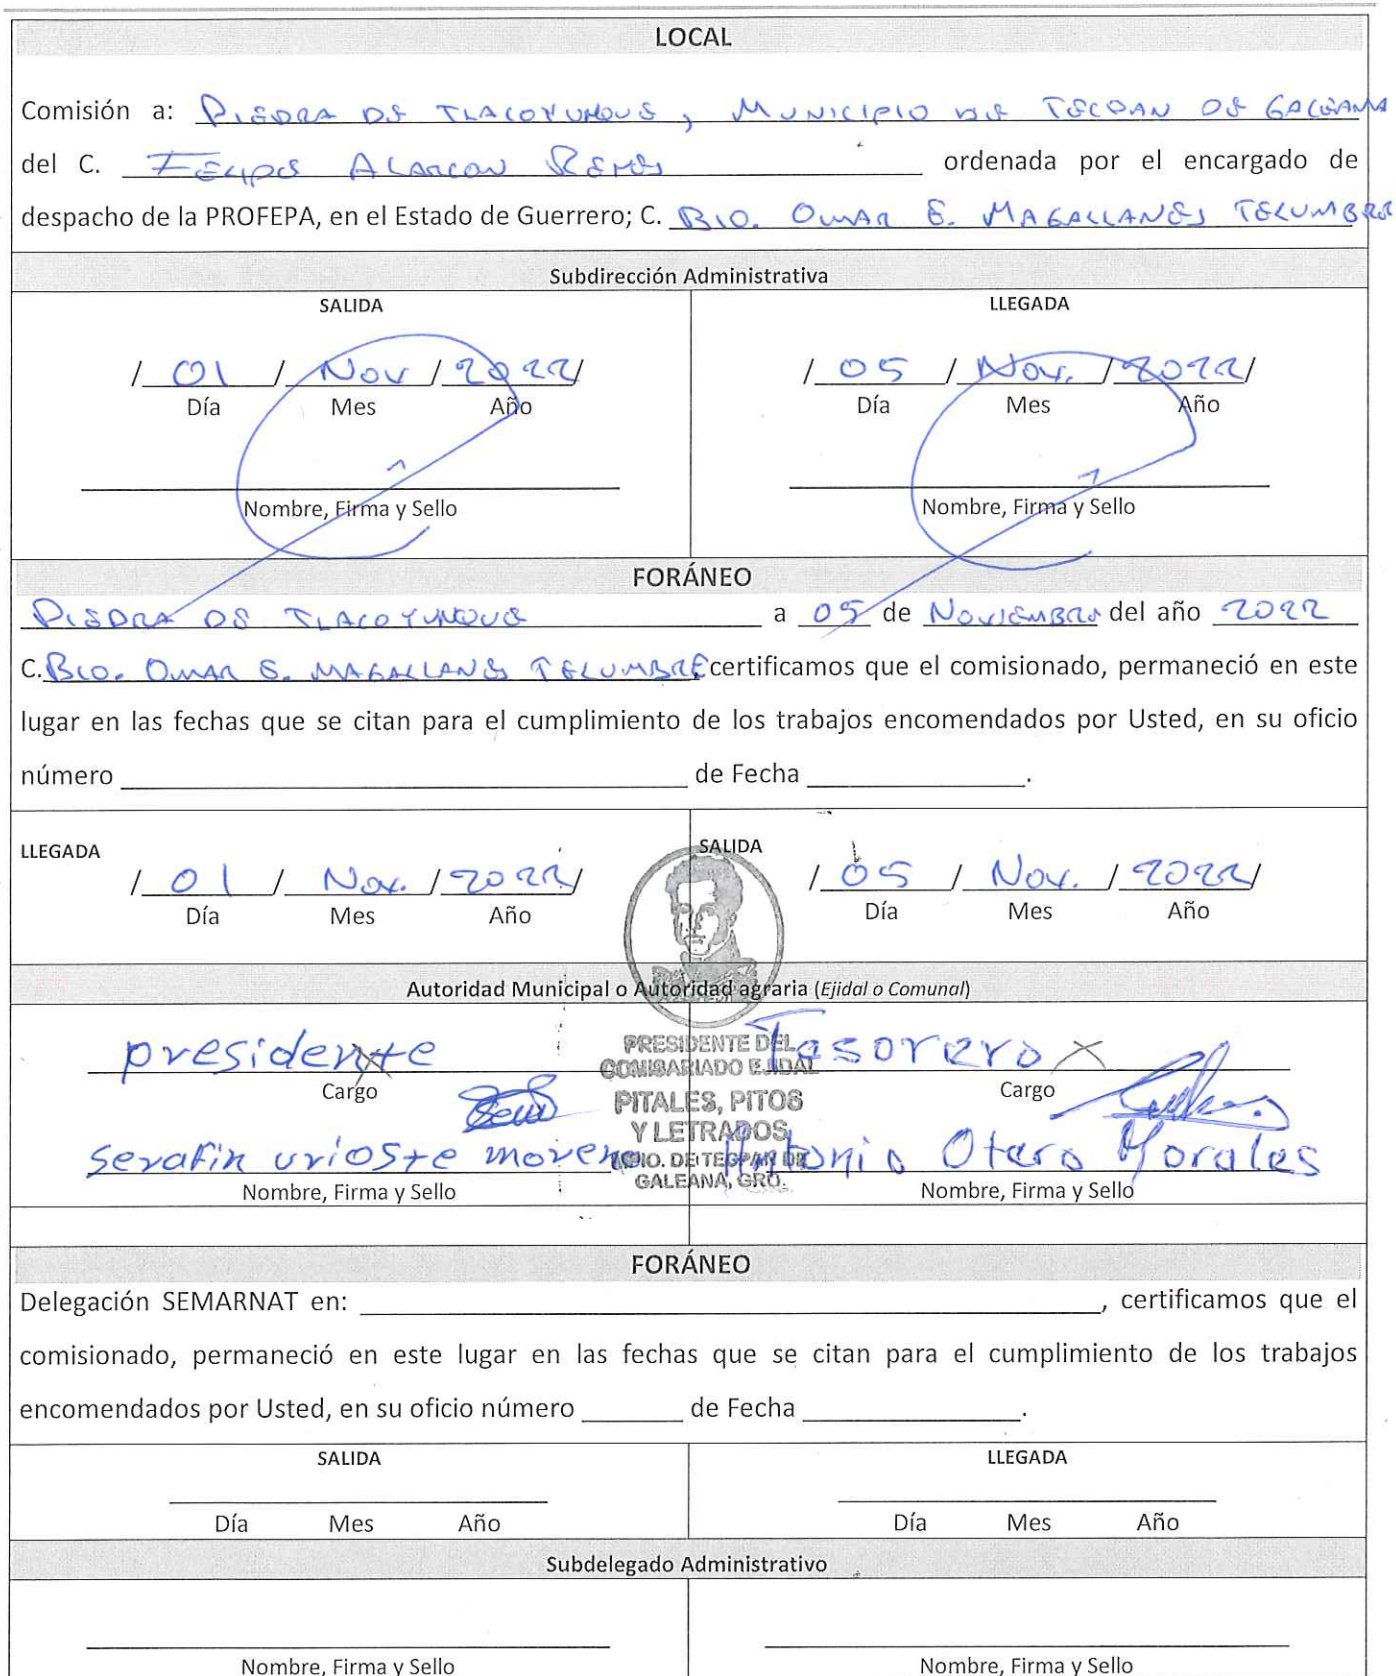 LOCAL
Comisión a: PIEDRA DE TLACOYUNQUE, MUNICIPIO DE TECPAN DE GALEANA
del C. FELIPE ALARCON REMOS ordenada por el encargado de
despacho de la PROFEPA, en el Estado de Guerrero; C. BIO. OMAR E. MAGALLANES TELUMBRE
Subdirección Administrativa
SALIDA
/ 01 / Nov / 2022/
Día Mes Año
Nombre, Firma y Sello
LLEGADA
/ 05 / Nov. / 2022/
Día Mes Año
Nombre, Firma y Sello
FORÁNEO
PIEDRA DE TLACOYUNQUE a 05 de NOVIEMBRE del año 2022
C. BIO. OMAR E. MAGALLANES TELUMBRE certificamos que el comisionado, permaneció en este
lugar en las fechas que se citan para el cumplimiento de los trabajos encomendados por Usted, en su oficio
número ____ de Fecha ____.
LLEGADA
/ 01 / Nov. / 2022/
Día Mes Año
SALIDA
/ 05 / Nov. / 2022/
Día Mes Año
Autoridad Municipal o Autoridad agraria (Ejidal o Comunal)
presidente
Cargo
serafin urioste moreno
Nombre, Firma y Sello
PRESIDENTE DEL
COMISARIADO EJIDAL
PITALES, PITOS
Y LETRADOS,
MPIO. DE TECPAN DE
GALEANA, GRO.
Tesorero
Cargo
Antonio Otero Morales
Nombre, Firma y Sello
FORÁNEO
Delegación SEMARNAT en: ____, certificamos que el
comisionado, permaneció en este lugar en las fechas que se citan para el cumplimiento de los trabajos
encomendados por Usted, en su oficio número ____ de Fecha ____.
SALIDA
Día Mes Año
LLEGADA
Día Mes Año
Subdelegado Administrativo
Nombre, Firma y Sello
Nombre, Firma y Sello